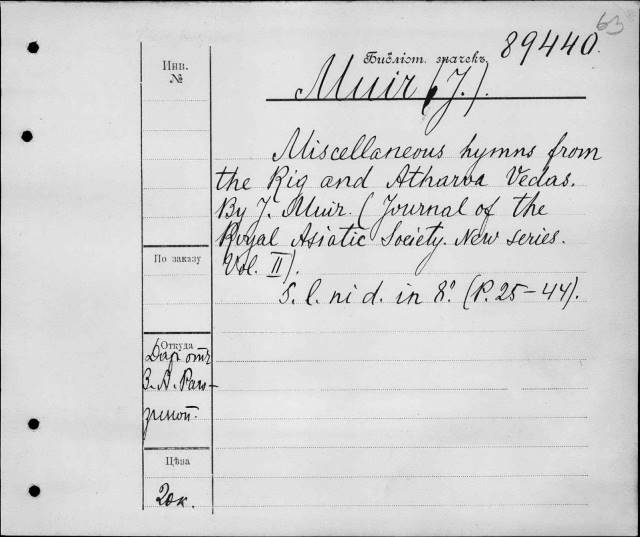 63
89440.
Библіот. значекъ
Инв.
№
Muir (J.).
Miscellaneous hymns from
the Rig and Atharva Vedas.
By J. Muir. (Journal of the
Royal Asiatic Society. New series.
Vol. II).
S. l. ni d. in 8º. (P. 25-44).
По заказу
Откуда
Даръ отъ
З. А. Раго-
зиной.
Цѣва
20к.